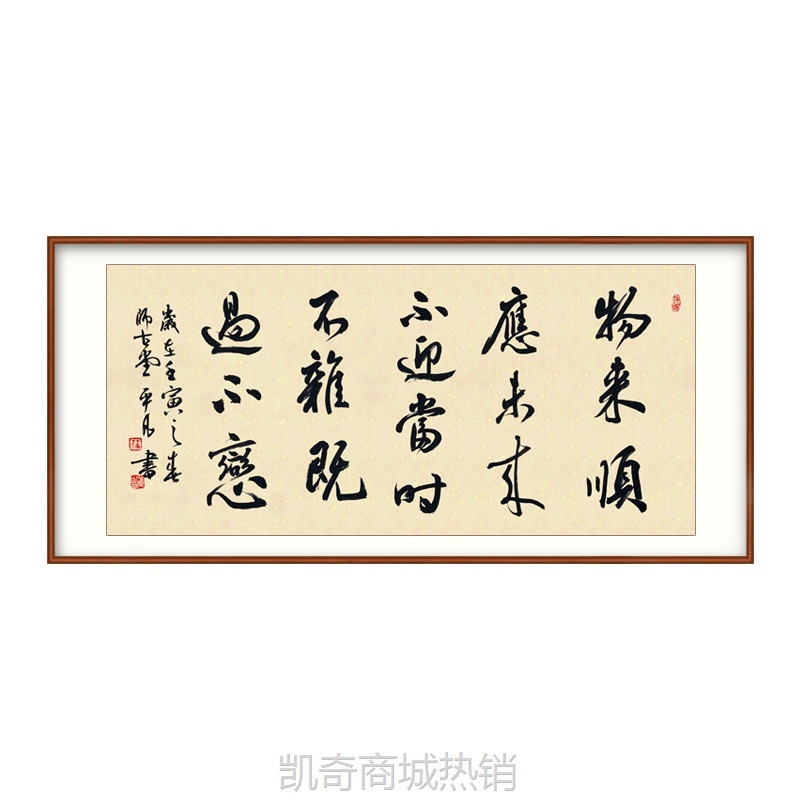 物来順
應未来
不迎當时
不雜既
過不戀
歲在壬寅之春
师古堂平凡書
凯奇商城热销